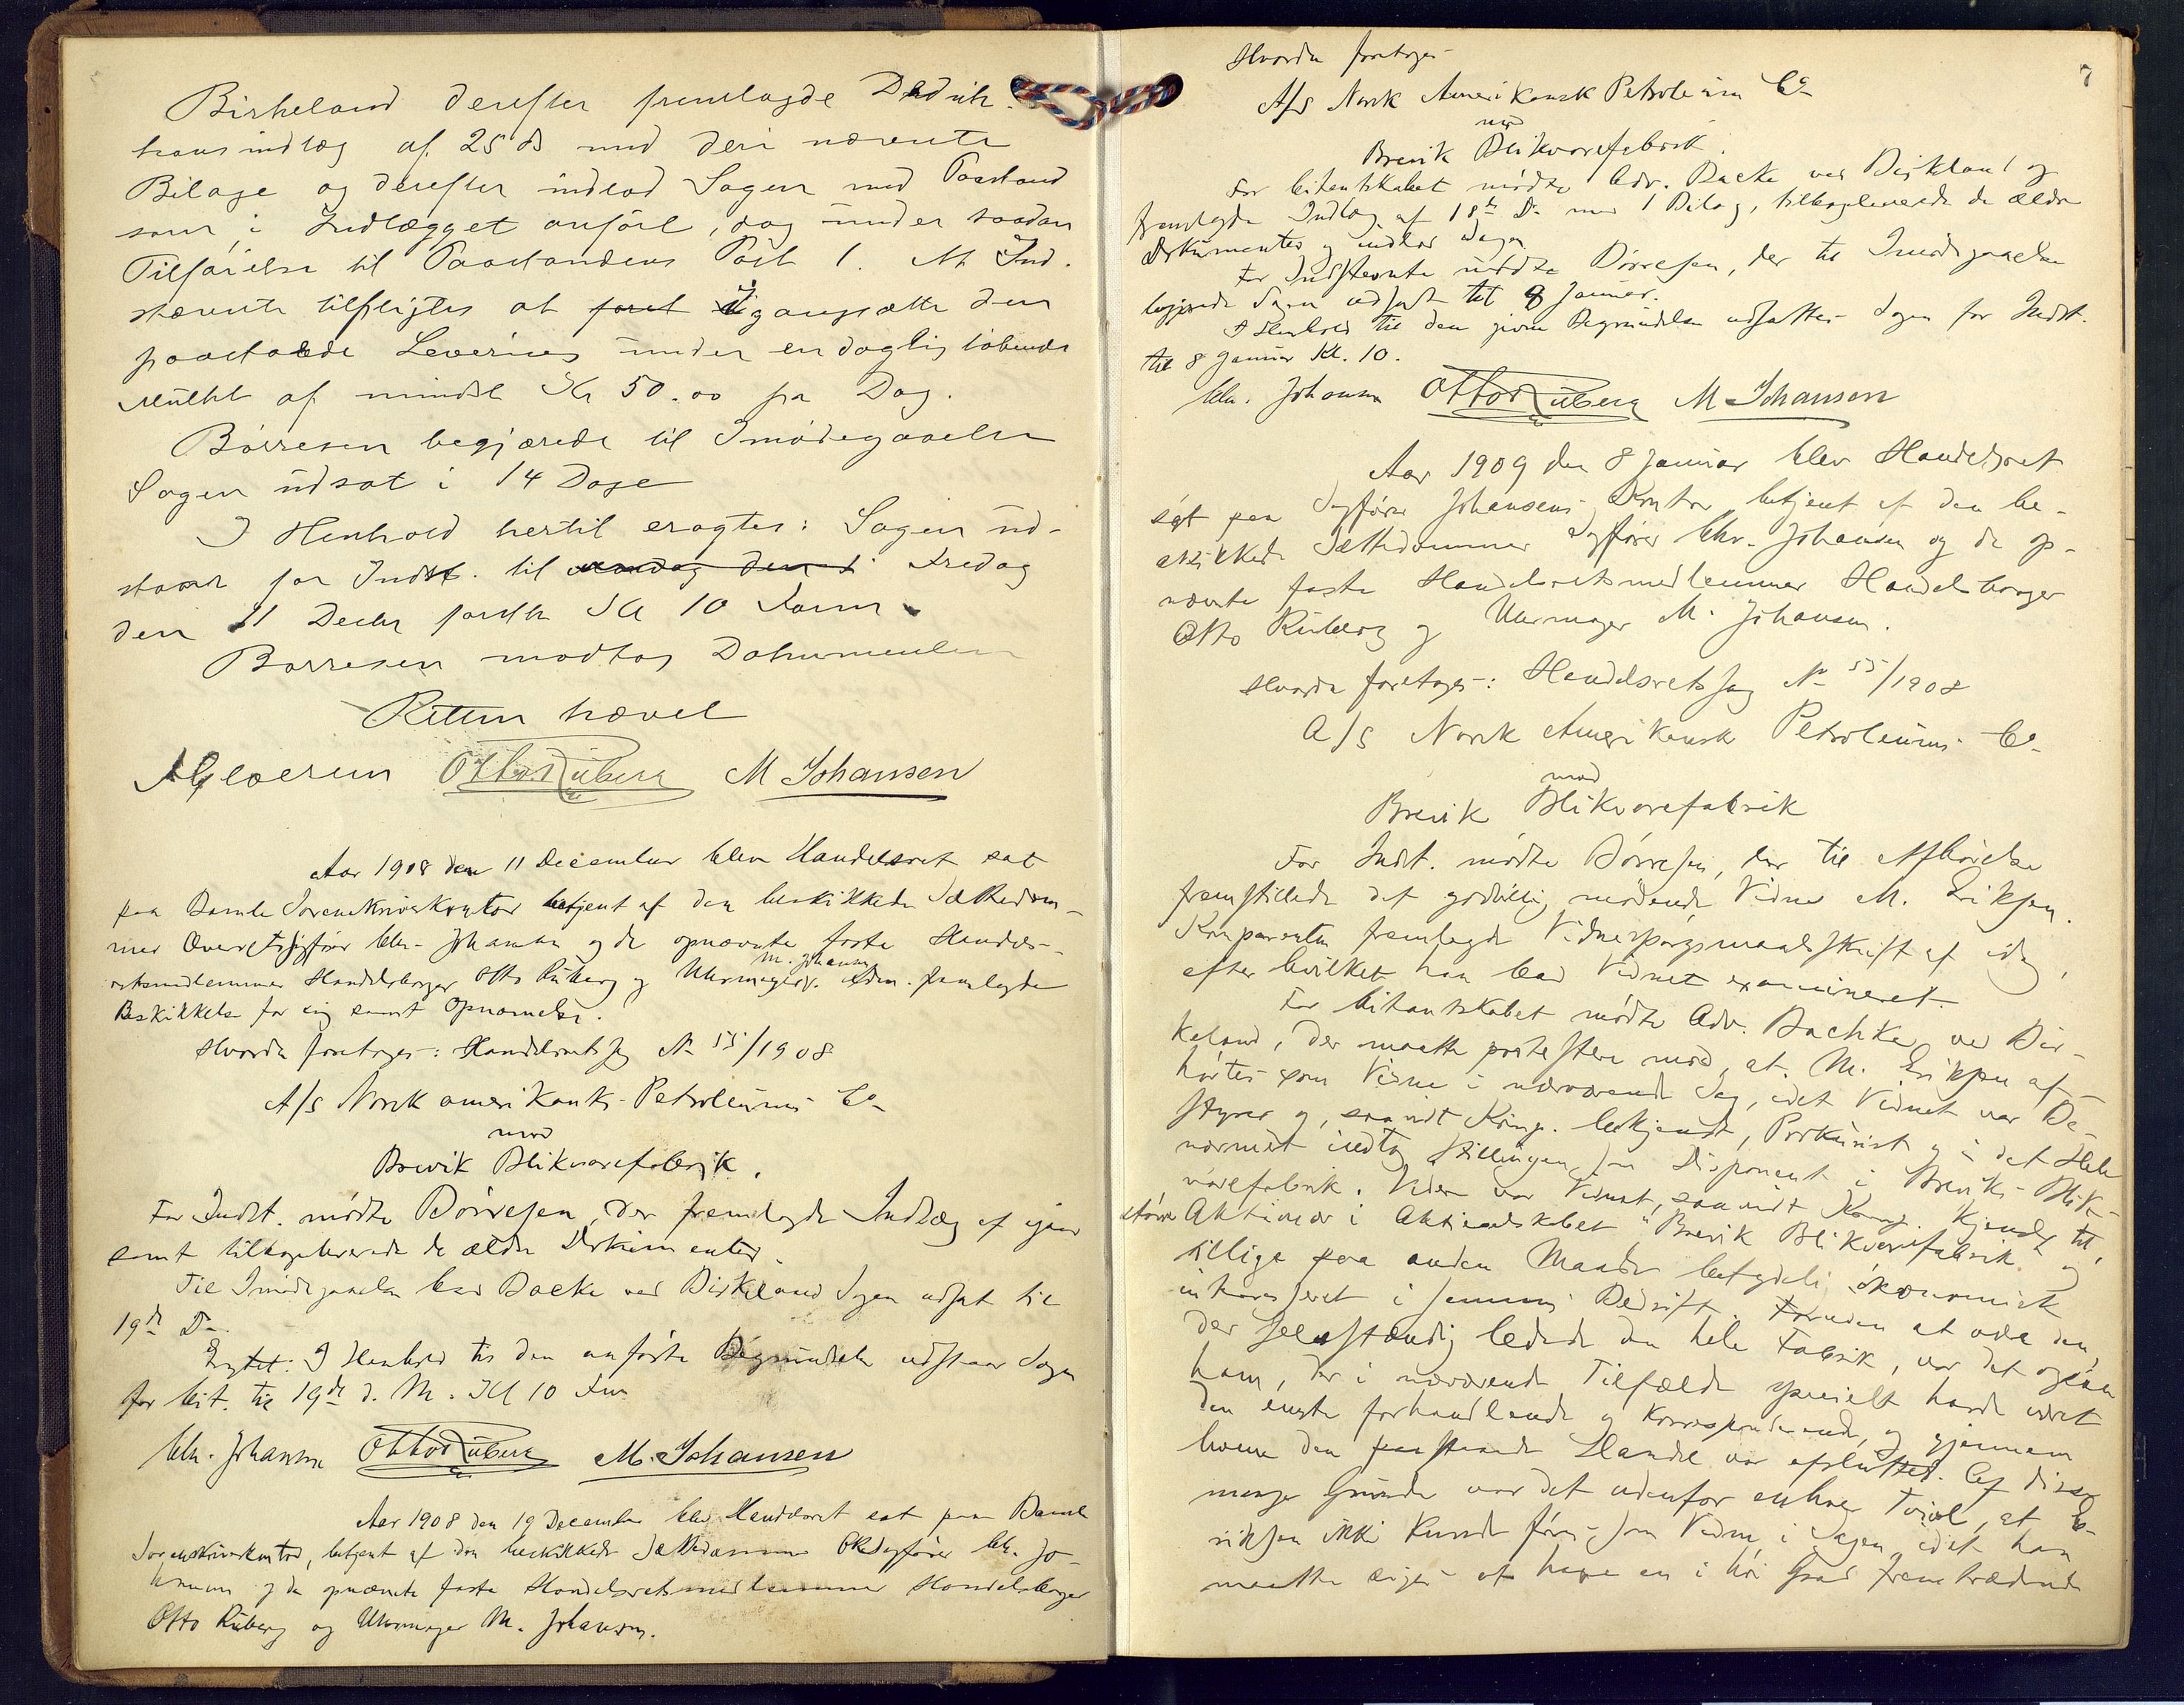 Birkeland derefter fremlagde Deduk-
tionsindlæg af 25 ds med deri nævnte
Bilage og derefter indlod Sagen med Paastand
som i Indlægget anført, dog under saadan
Tilføielse til Paastandens Post 1. At Ind-
stævnte tilpligtes at igangsætte den
paastaaede Levering under en daglig løbende
Mulkt af mindst Kr 50.00 pr Dag.
Børresen begjærede til Imødegaaelse
Sagen udsat i 14 Dage
I Henhold hertil eragtes: Sagen ud-
staar for Indst. til Fredag
den 11 Decbr førstk Kl 10 Form.
Børresen modtog Dokumenterne
Retten hævet
Otto Rüberg M Johansen
Aar 1908 den 11 December blev Handelsret sat
paa Bamle Sorenskriverkontor betjent af den beskikkede Sættedom-
mer Overretssagfører Chr. Johansen og de opnævnte faste Handels-
retsmedlemmer Handelsborger Otto Rüberg og Uhrmager M. Johansen. Adm. fremlagde
Beskikkelse for sig samt Opnævnelse.
Hvorda foretoges: Handelsretssag No 55/1908
A/S Norsk amerikansk Petroleums Co
mod
Brevik Blikvarefabrik.
For Indst. mødte Børresen, der fremlagde Indlæg af igaar
samt tilbageleverede de ældre Dokumenter.
Til Imødegaaelse bad Backe ved Birkeland Sagen udsat til
19de Ds.
Eragtet: I Henhold til den anførte Begrundelse udstaar Sagen
for Cit. til 19de d. M. Kl 10 Fm
Chr. Johansen Otto Rüberg M. Johansen
Aar 1908 den 19 December blev Handelsret sat paa Bamle
Sorenskriverkontor, betjent af den beskikkede Sættedommer ORSagfører Chr. Jo-
hansen og de opnævnte faste Handelsretsmedlemmer Handelsborger
Otto Rüberg og Uhrmager M. Johansen.
7
Hvorda foretoges
A/S Norsk Amerikansk Petroleum Co
mod
Brevik Blikvarefabrik.
For Citantskabet mødte Adv. Backe ved Birkeland og
fremlagde Indlæg af 18de Ds. med 1 Bilag, tilbageleverede de ældre
Dokumenter og indlod Sagen
For Indstevnte mødte Børresen, der til Imødegaaelse
begjærede Sagen udsat til 8 Januar.
I Henhold til den givne Begrundelse udsattes Sagen for Indst.
til 8 Januar Kl. 10.
Chr. Johansen Otto Rüberg M. Johansen
Aar 1909 den 8 Januar blev Handelsret
sat paa Sagfører Johansens Kontor betjent af den be-
skikkede Sættedommer Sagfører Chr. Johansen og de op-
nævnte faste Handelsretsmedlemmer Handelsborger
Otto Rüberg og Uhrmager M. Johansen.
Hvorda foretoges: Handelsretssag No 55/1908
A/S Norsk Amerikansk Petroleums Co
mod
Brevik Blikvarefabrik
For Indst. mødte Børresen, der til Afhørelse
fremstillede det godvillig mødende Vidne M. Eriksen.
Komparenten fremlagde Vidnespørgsmaalsskrift af idag,
efter hvilket han bad Vidnet examineret.
For Citantskabet mødte Adv. Bachke ved Bir-
keland, der maatte protestere mod, at M. Eriksen af-
hørtes som Vidne i nærværende Sag, idet Vidnet var Be-
styrer og, saavidt Komp. bekjendt, Prokurist og i det Hele
nærmest indtog Stillingen som Disponent i Brevik Blik-
varefabrik. Videre var Vidnet, saavidt Komp. kjendte til,
større Aktionær i Aktieselskabet "Brevik Blikvarefabrik" og
tillige paa anden Maade betydelig økonomisk
interesseret i samme Bedrift. Foruden at være den,
der selvstændig ledede den hele Fabrik, var det ogsaa
ham, der i nærværende Tilfælde specielt havde været
den eneste forhandlende og korresponderende, og gjennem
hvem den paastaaede Handel var afsluttet. Af disse
mange Grunde var det udenfor enhver Tvivl, at E-
riksen ikke kunde føres som Vidne i Sagen, idet han
maatte siges at have en i høi Grad fremtrædende